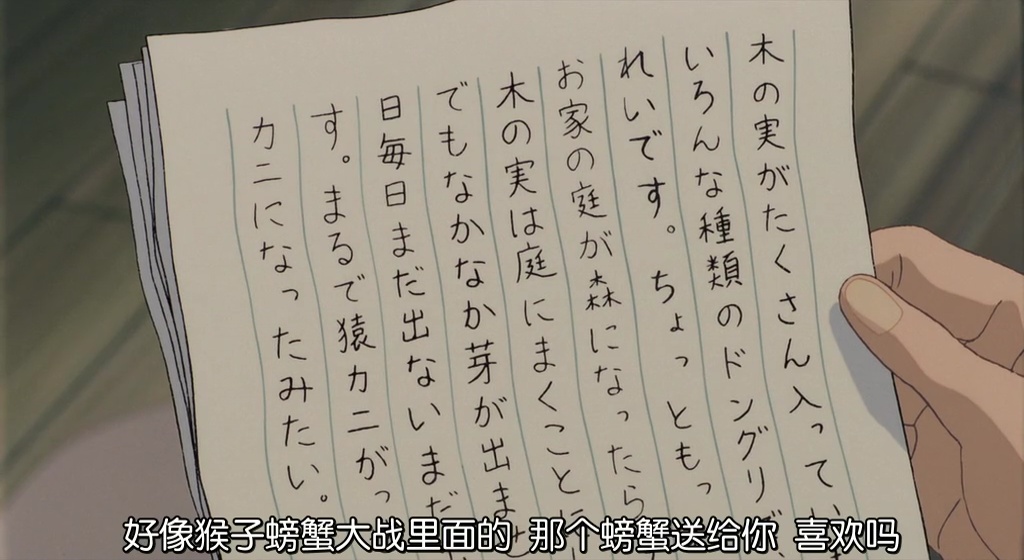 木の実がたくさん入ってい
いろんな種類のドングリで
れいです。ちょっともっ
お家の庭が森になったら
木の実は庭にまくことに
でもなかなか芽が出ませ
日毎日まだ出ないまだ
す。まるで猿カニがっ
カニになったみたい。
好像猴子螃蟹大战里面的 那个螃蟹送给你 喜欢吗